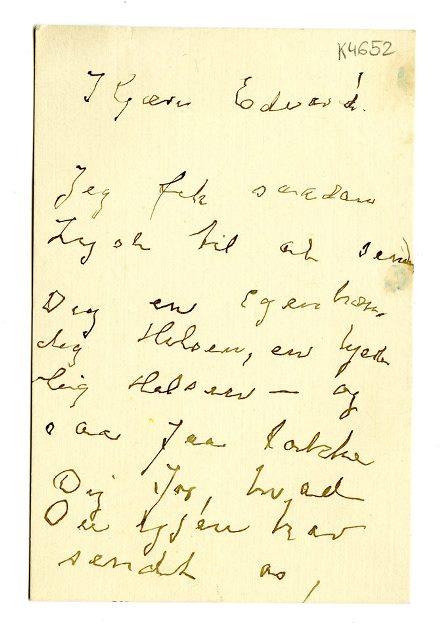 K4652
Kjære Edvard.
Jeg fik saadan
Lyst til at sende
Dig en Egenhæn-
dig Hilsen, en hjerte-
lig Hilsen — og
saa faa takke
Dig for, hvad
Du igjen har
sendt os,